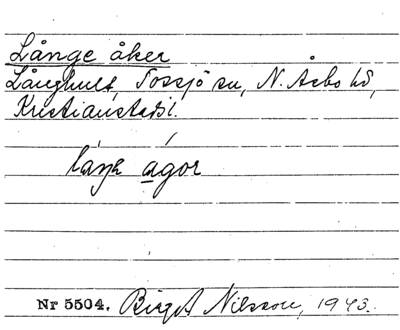 Långe åker
Långhult, Tossjö sn, N. Åsbo hd,
Kristianstads l.
láŋk ágor
Nr 5504. Birgit Nilsson, 1943.